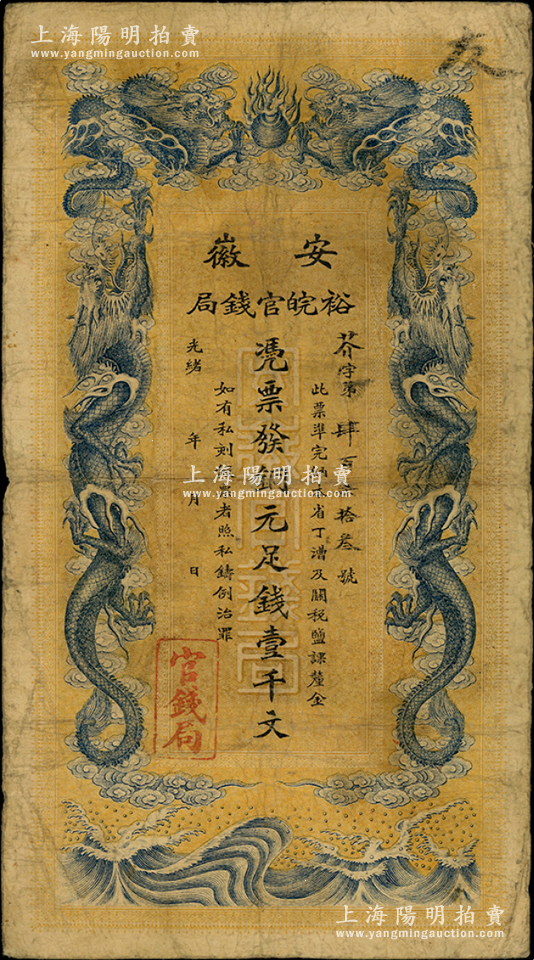 上海陽明拍賣
www.yangmingauction.com
安徽
裕皖官錢局
芥字第肆百拾叁號
此票準完納本省丁漕及關稅鹽課釐金
憑票發銅元足錢壹千文
如有私刻者照私鑄例治罪
光緒 年 月 日
官錢局
上海陽明拍賣
www.yangmingauction.com
上海陽明拍賣
www.yangmingauction.com